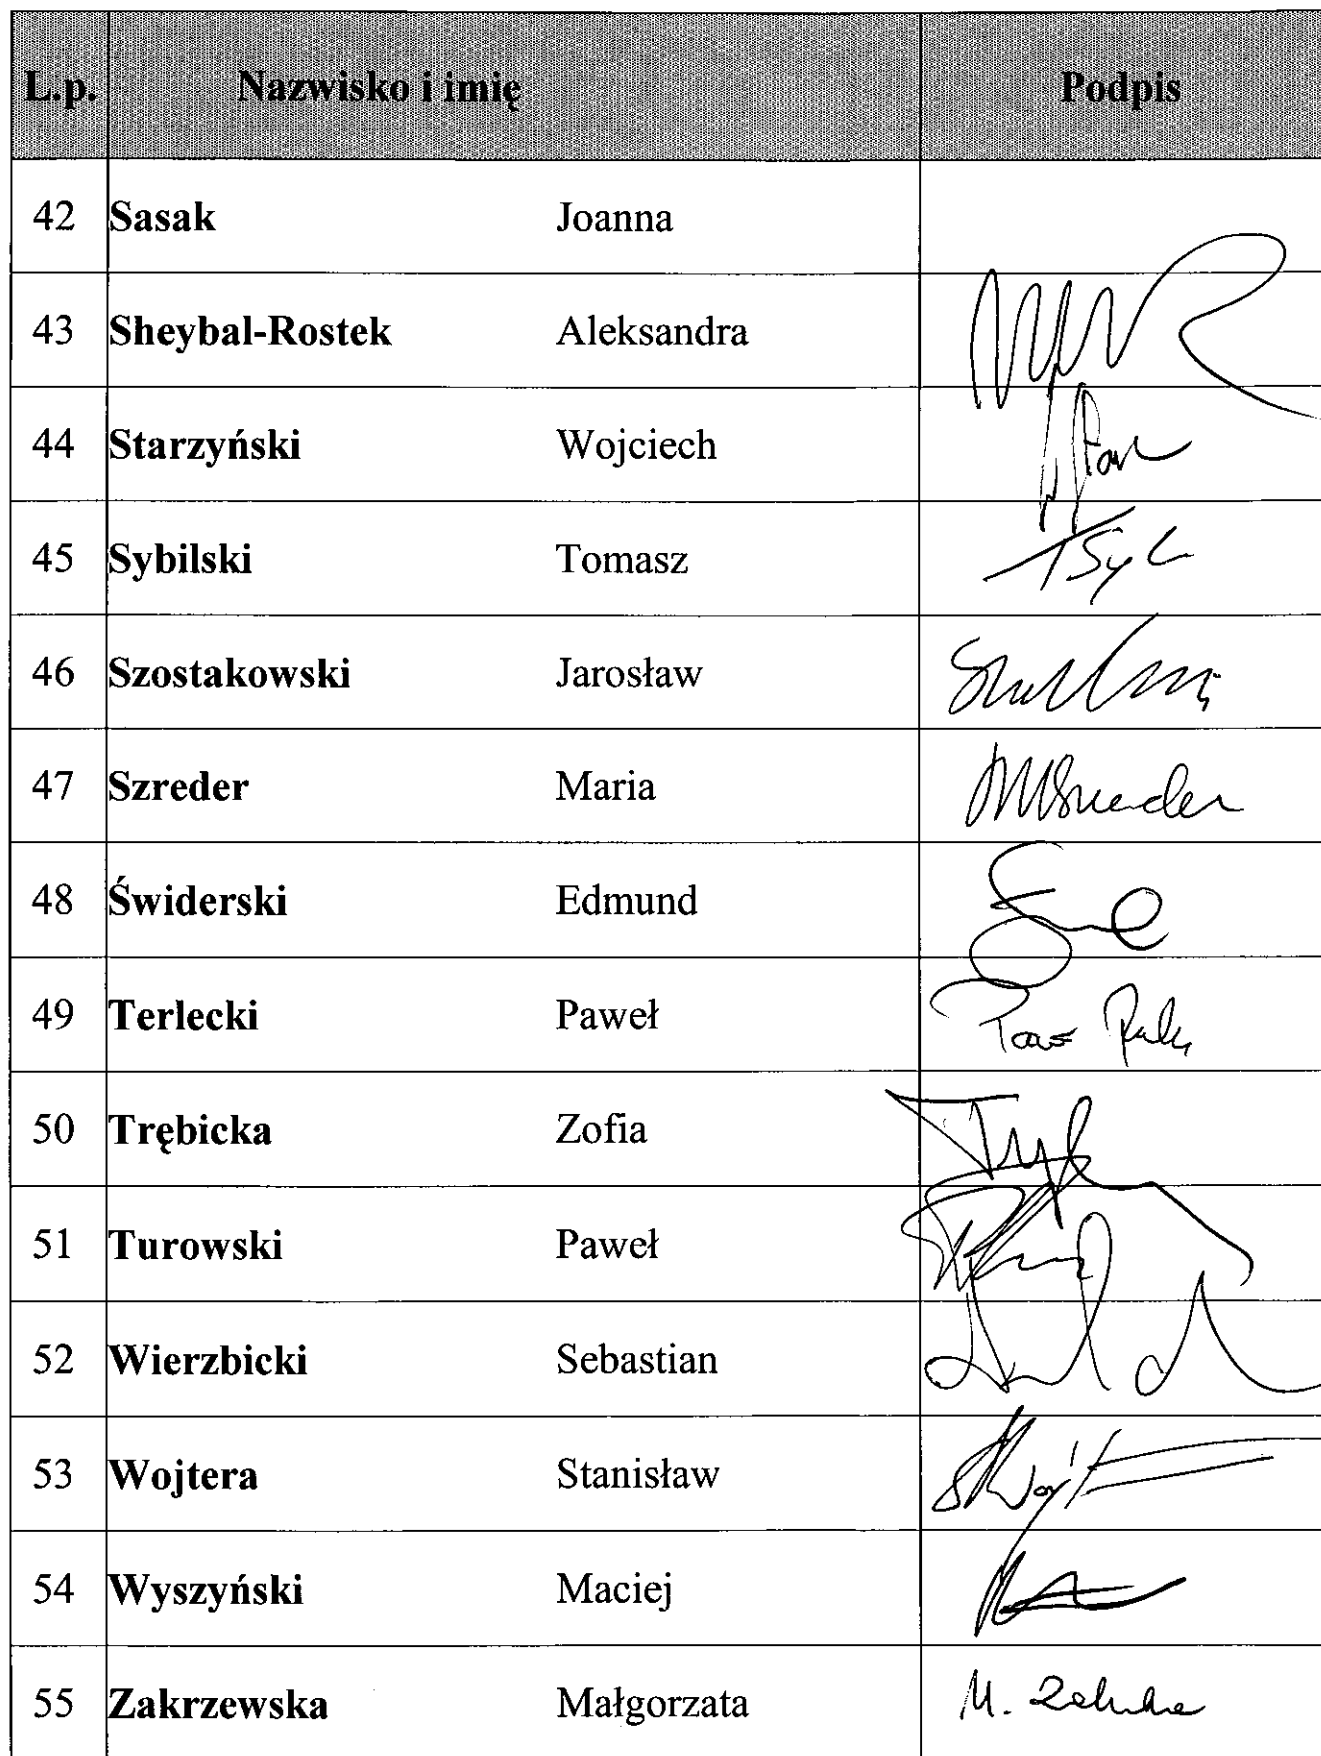 L.p. Nazwisko i imię Podpis
42 Sasak Joanna
43 Sheybal-Rostek Aleksandra
44 Starzyński Wojciech
45 Sybilski Tomasz
46 Szostakowski Jarosław
47 Szreder Maria
48 Świderski Edmund
49 Terlecki Paweł
50 Trębicka Zofia
51 Turowski Paweł
52 Wierzbicki Sebastian
53 Wojtera Stanisław
54 Wyszyński Maciej
55 Zakrzewska Małgorzata